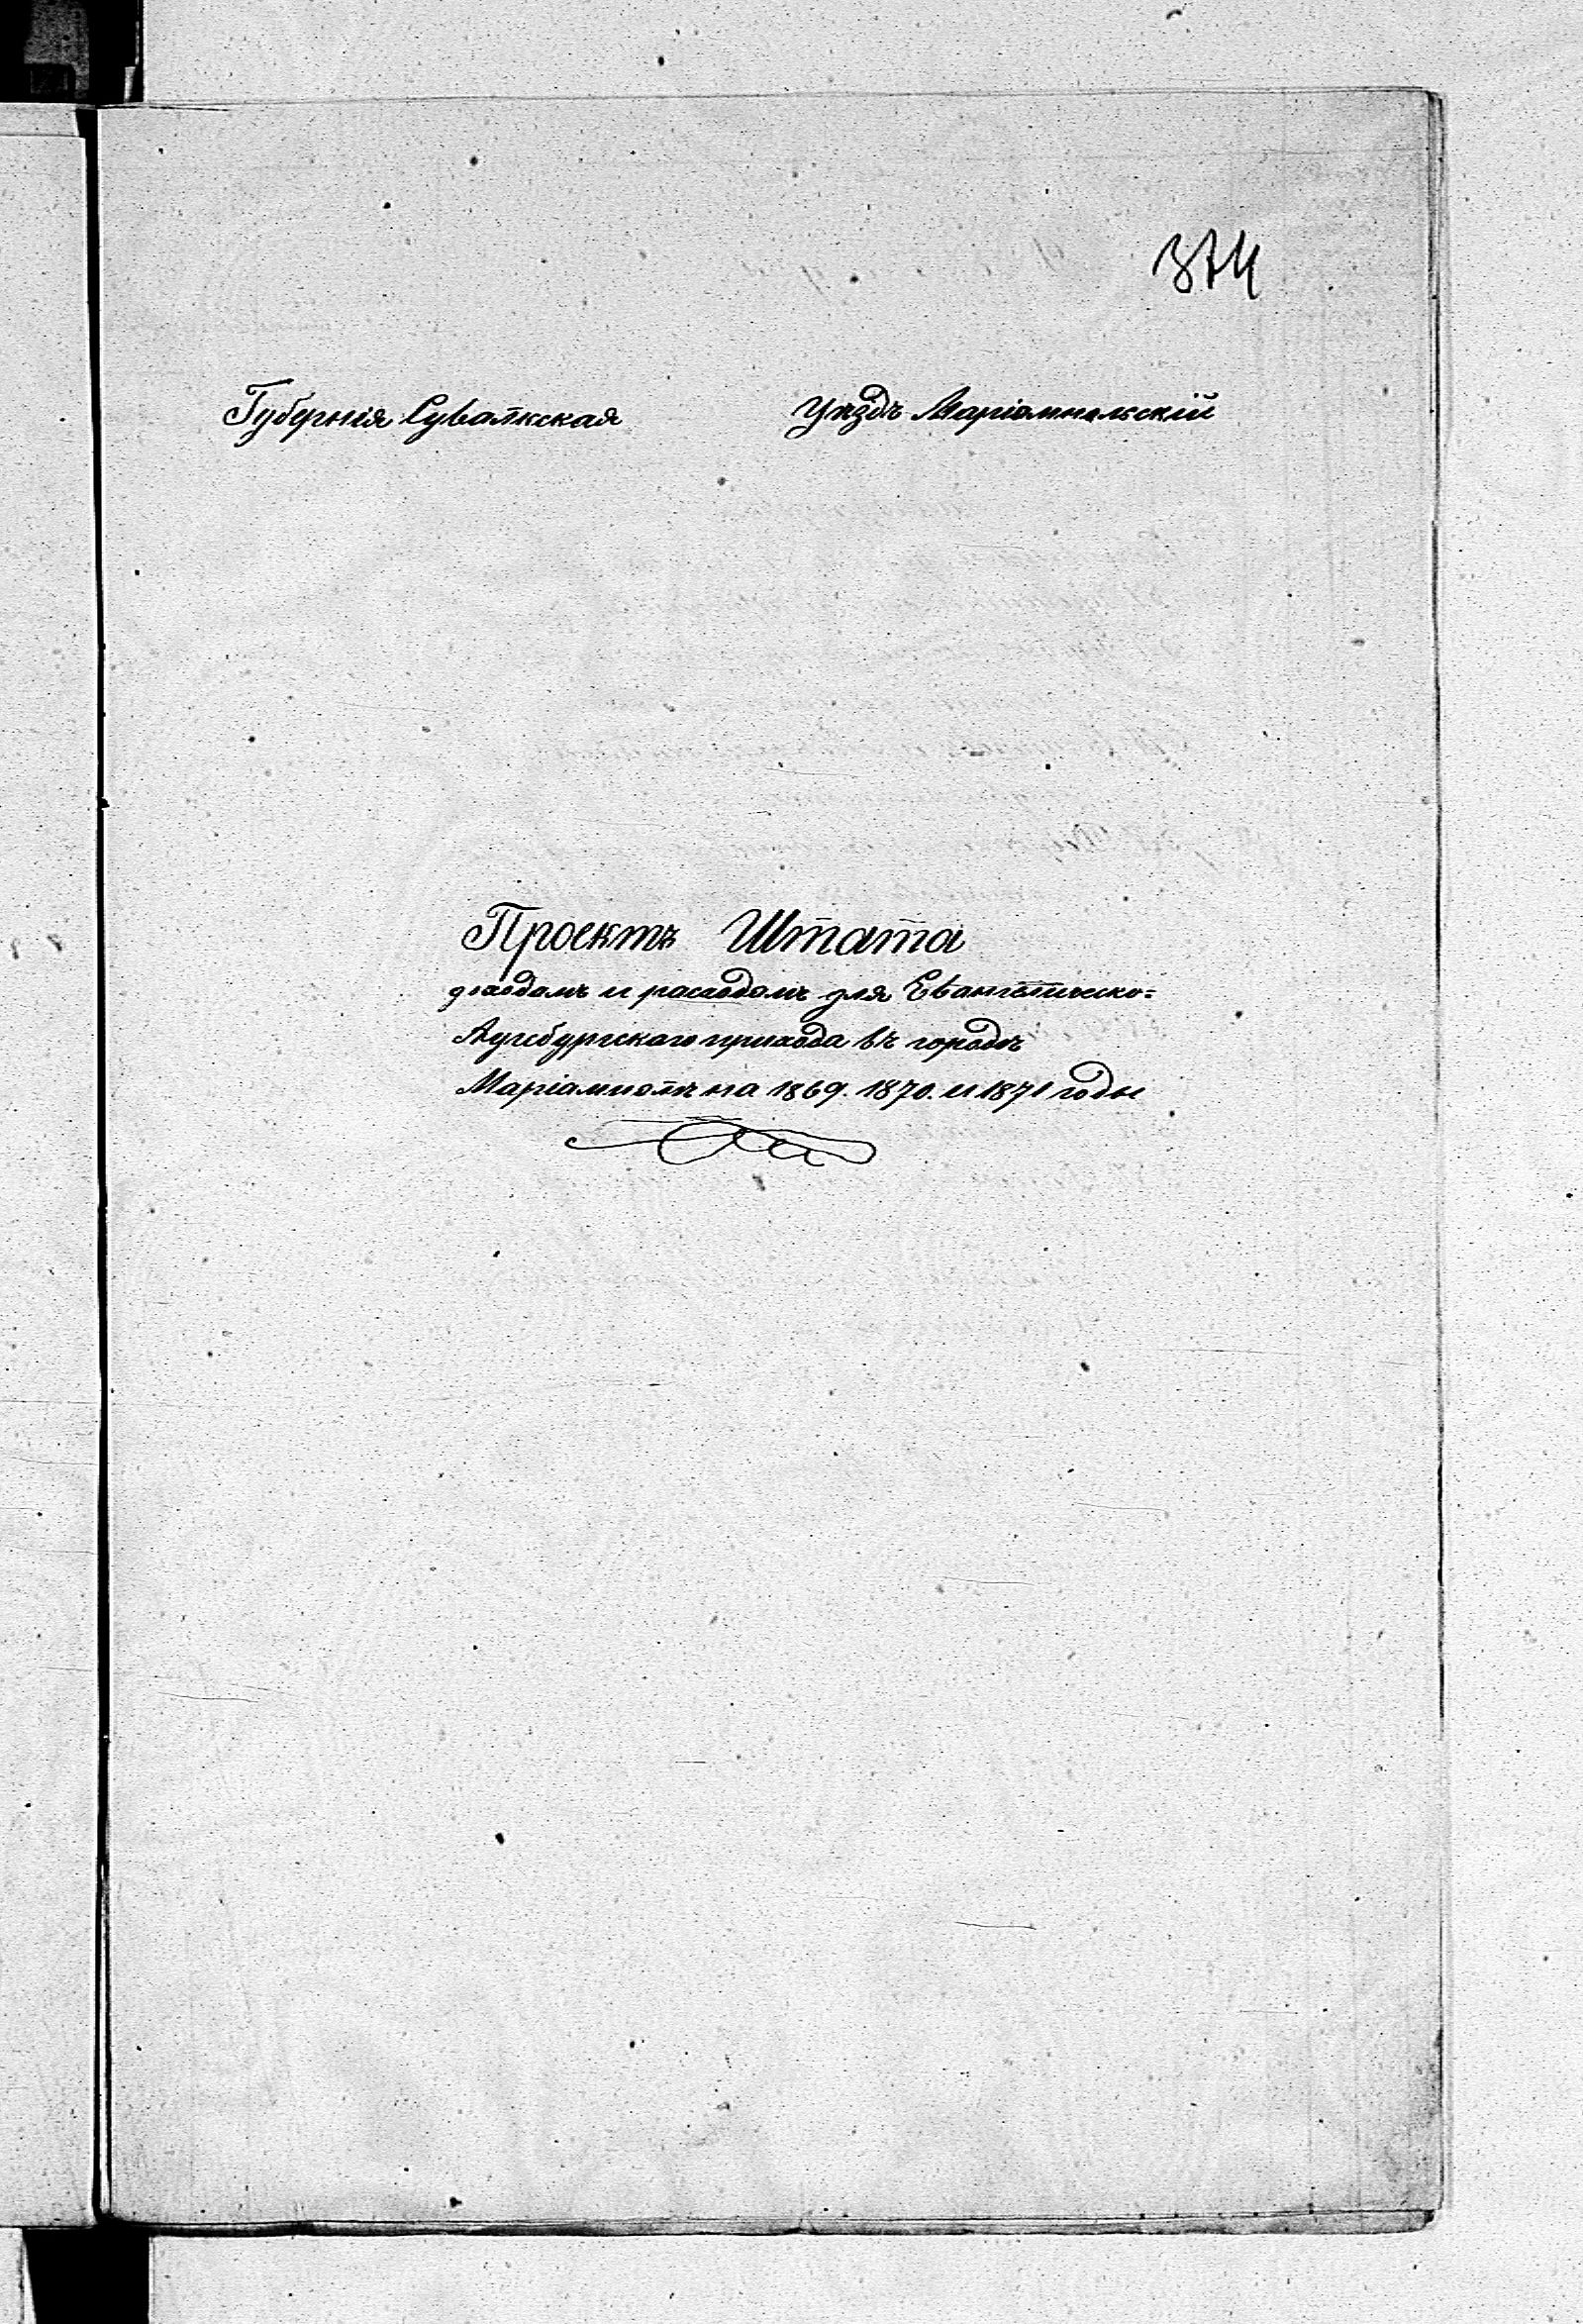 374
Губернія Сувалкская Уѣздъ Маріампольскій
Проектъ Штата
доходамъ и расходамъ для Евангелическо=
Аугсбургскаго прихода въ городѣ
Маріамполѣ на 1869. 1870. и 1871 годы